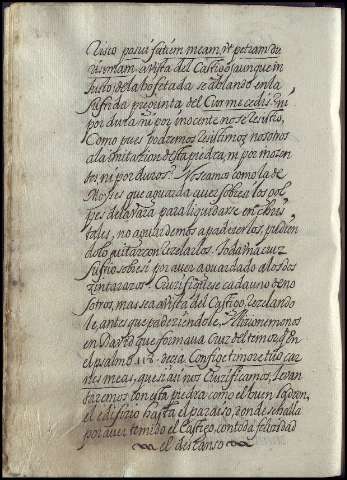 Risco posui fatiem meam, vt petram du
rissimam, a vista del Castigo (aunque in
justo) de la bofetada se ablandò en la
sufrida pregunta del Cur me cedis? ni
por dura, ni por inocente no se resistio,
Como pues podremos resistirnos nosotros
a la imitacion desta piedra, ni por inozen
tes, ni por duros? No seamos como la de
Moyses que aguarda auer sobre si los gol
pes de la vara para liquidarse en chris
tales, no aguardemos a padezerlos, pudien
dolo quitar con rezelarlos. Toda vna cruz
sufrio sobre si por auer aguardado a los dos
zintarazos. Crucifiquese cada vno de no
sotros, mas sea a vista del Castigo, rezelando
le, antes que padeziendole. Miremonos
en Dauid que formaua Cruz del temor q̃ en
el psalmo 118. dezia. Confige timore tuo car
nes meas, que si asi nos crucificamos, leuan
taremos con esta piedra como el buen ladron,
el edifizio hasta el paraiso, donde se halla
por auer temido el Castigo, con toda felizidad
el descanso